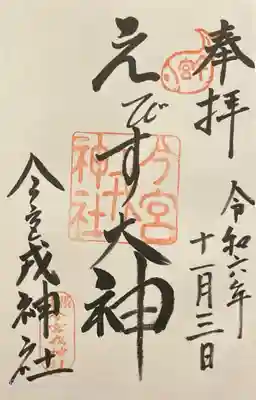 奉拝
令和六年
十一月三日
えびす大神
今宮戎神社
宮
今宮
戎
神社